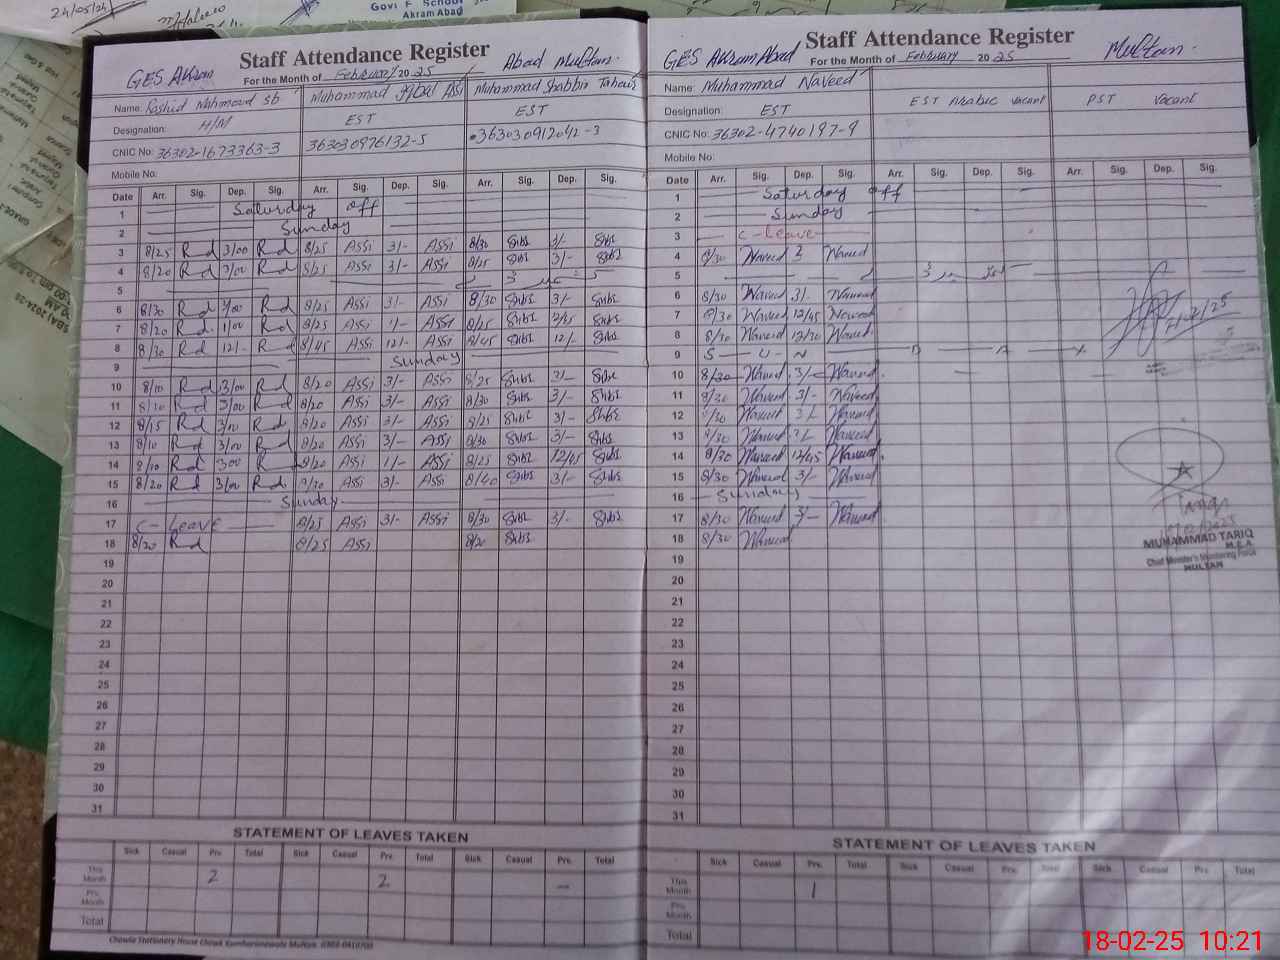 24/05/24
Govt F School
Akram Abad
Staff Attendance Register
GES Akram Abad Multan.
For the Month of February 2025
Name: Rashid Mahmood sb Muhammad Iqbal Assi Muhammad Shabbir Tahair
Designation: H/M EST EST
CNIC No: 36302-1673363-3 363030976132-5 363030912042-3
Mobile No:
Date Arr. Sig. Dep. Sig. Arr. Sig. Dep. Sig. Arr. Sig. Dep. Sig.
1 Saturday off
2 Sunday
3 8/25 Rd 3/00 Rd 8/25 Assi 3/- Assi 8/30 Shbz 3/- Shbz
4 8/20 Rd 3/00 Rd 8/25 Assi 3/- Assi 8/25 Shbz 3/- Shbz
5
6 8/30 Rd 3/00 Rd 8/25 Assi 3/- Assi 8/30 Shbz 3/- Shbz
7 8/20 Rd 1/00 Rd 8/25 Assi 1/- Assi 8/25 Shbz Shbz
8 8/30 Rd 12/- Rd 8/45 Assi 12/- Assi 8/45 Shbz 12/- Shbz
9 Sunday
10 8/10 Rd 3/00 Rd 8/20 Assi 3/- Assi 8/25 Shbz 3/- Shbz
11 8/20 Rd 3/00 Rd 8/20 Assi 3/- Assi 8/30 Shbz 3/- Shbz
12 8/15 Rd 3/00 Rd 8/20 Assi 3/- Assi 8/25 Shbz 3/- Shbz
13 8/10 Rd 3/00 Rd 8/20 Assi 3/- Assi 8/30 Shbz 3/- Shbz
14 8/10 Rd 300 R 8/20 Assi 1/- Assi 8/25 Shbz 12/45 Shbz
15 8/20 Rd 3/00 Rd 8/30 Assi 3/- Assi 8/40 Shbz 3/- Shbz
16 Sunday
17 C-Leave 8/25 Assi 3/- Assi 8/30 Shbz 3/- Shbz
18 8/30 Rd 8/25 Assi 8/20 Shbz
19
20
21
22
23
24
25
26
27
28
29
30
31
STATEMENT OF LEAVES TAKEN
Sick Casual Prv. Total Sick Casual Prv. Total Sick Casual Prv. Total
This Month 2 2 -
Prv. Month
Total
Staff Attendance Register
GES Akram Abad Multan.
For the Month of February 2025
Name: Muhammad Naveed EST Arabic vacant PST vacant
Designation: EST
CNIC No: 36302-4740197-9
Mobile No:
Date Arr. Sig. Dep. Sig. Arr. Sig. Dep. Sig. Arr. Sig. Dep. Sig.
1 Saturday off
2 Sunday
3 C-Leave
4 8/30 Naveed 3 Naveed
5
6 8/30 Naveed 3/- Naveed
7 8/30 Naveed 12/45 Naveed
8 8/30 Naveed 12/30 Naveed
9 S U N D A Y
10 8/30 Naveed 3/- Naveed
11 8/30 Naveed 3/- Naveed
12 8/30 Naveed 3/- Naveed
13 8/30 Naveed Naveed
14 8/30 Naveed 12/45 Naveed
15 8/30 Naveed 3/- Naveed
16 Sunday
17 8/30 Naveed 3/- Naveed
18 8/30 Naveed
19
20
21
22
23
24
25
26
27
28
29
30
31
MUHAMMAD TARIQ
M.E.A.
Chief Minister's Monitoring Force
MULTAN
STATEMENT OF LEAVES TAKEN
Sick Casual Prv. Total Sick Casual Prv. Total Sick Casual Prv. Total
This Month 1
Prv. Month
Total
18-02-25 10:21